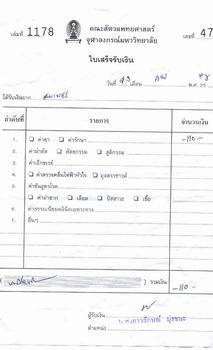 เล่มที่ 1178
คณะสัตวแพทยศาสตร์
จุฬาลงกรณ์มหาวิทยาลัย
เลขที่ 47
ใบเสร็จรับเงิน
วันที่ 23 เดือน พ.ศ. 25
ได้รับเงินจาก
ลำดับที่ รายการ จำนวนเงิน
1. ค่ายา ค่ารักษา -110-
2. ค่าผ่าตัด ศัลยกรรม สูติกรรม
3. ค่าเอ็กซเรย์
4. ค่าตรวจคลื่นไฟฟ้าหัวใจ อุลตราซาวด์
5. ค่าชันสูตรโรค
ค่าผ่าซาก เลือด ปัสสาวะ เชื้อ
6. ค่าธรรมเนียมคลินิคเฉพาะทาง
7. อื่นๆ
รวมเงิน -110-
ผู้รับเงิน
ตำแหน่ง